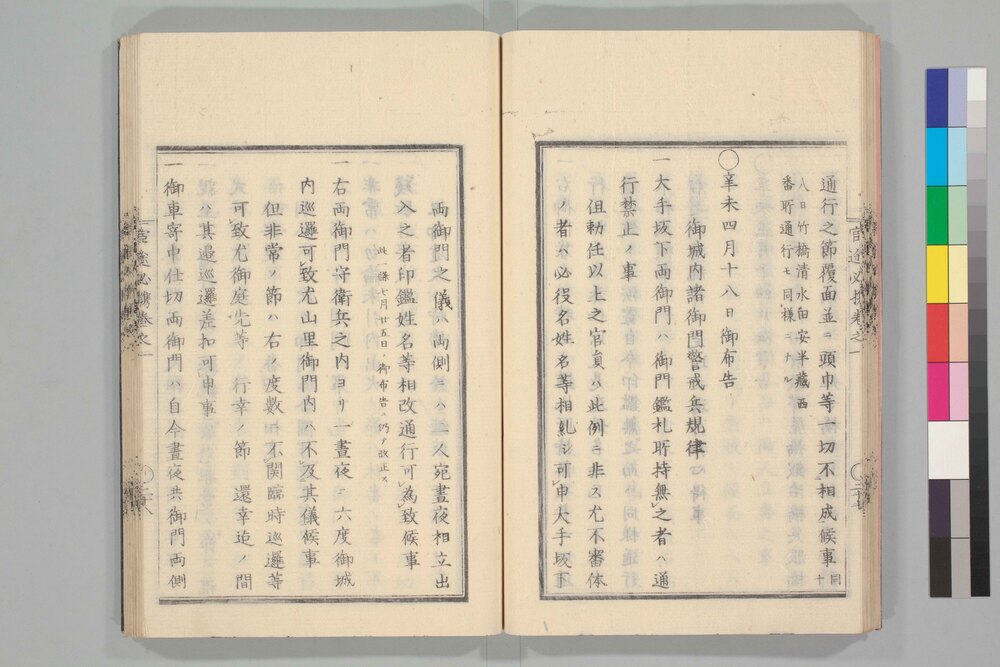 官途必携巻之一
通行之節覆面並ニ頭巾等一切不相成候事 同十
八日竹橋清水田安半蔵西
番所通行モ同様ナル
○辛未四月十八日御布告
御城内諸御門警戒兵規律
一大手坂下両御門ハ御門鑑札所持無之者ハ通
行禁止ノ事
但勅任以上之官員ハ此例ニ非ス尤不審体
ノ者ハ必役名姓名等相糺シ可申大手坂下
両御門之儀ハ両側ニハ 人宛昼夜相立出
入之者印鑑姓名等相改通行可為致候事
此一条七月廿五日ノ御布告ニ仍テ改正ス
一右両御門守衛兵之内ヨリ一昼夜ニ六度御城
内巡邏可致尤山里御門内ハ不及其儀候事
但非常ノ節ハ右ノ度数ニ不関臨時巡邏等
可致尤御庭先等ノ行幸ノ節 還幸迄ノ間
ハ其辺巡邏差扣可申事
一御車寄中仕切両御門ハ自今昼夜共御門両側
官途必携巻之一